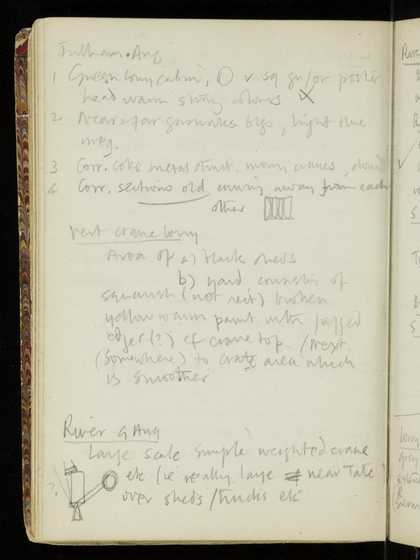 Fulham. Aug
1 Green lorry cabin, O v sq gn/or poster
head warm strong colours X
2 Near & far garages bgs, light blue
neg.
3 Corr. Coke metal struct. many cranes,
4 Corr. sections old curving away from each
other
Next crane lorry
Area of a) black sheds
b) yard consists of
squarish (not rect) broken
yellow warm paint with jagged
edges (?) cf crane top. / Next
(somewhere) to crate area which
is smoother
River 9 Aug
Large scale simple weighted crane
etc (ie really large near Tate)
over sheds / trucks etc
?